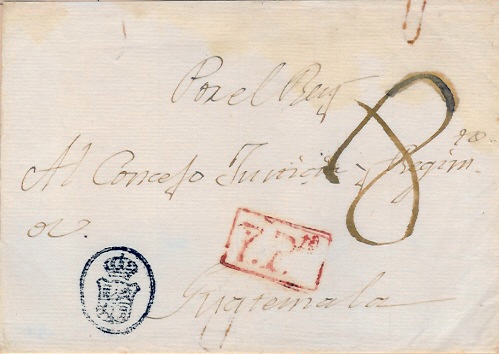 Por el Rey
Al Concejo Justicia y Regim.to
8
Guatemala